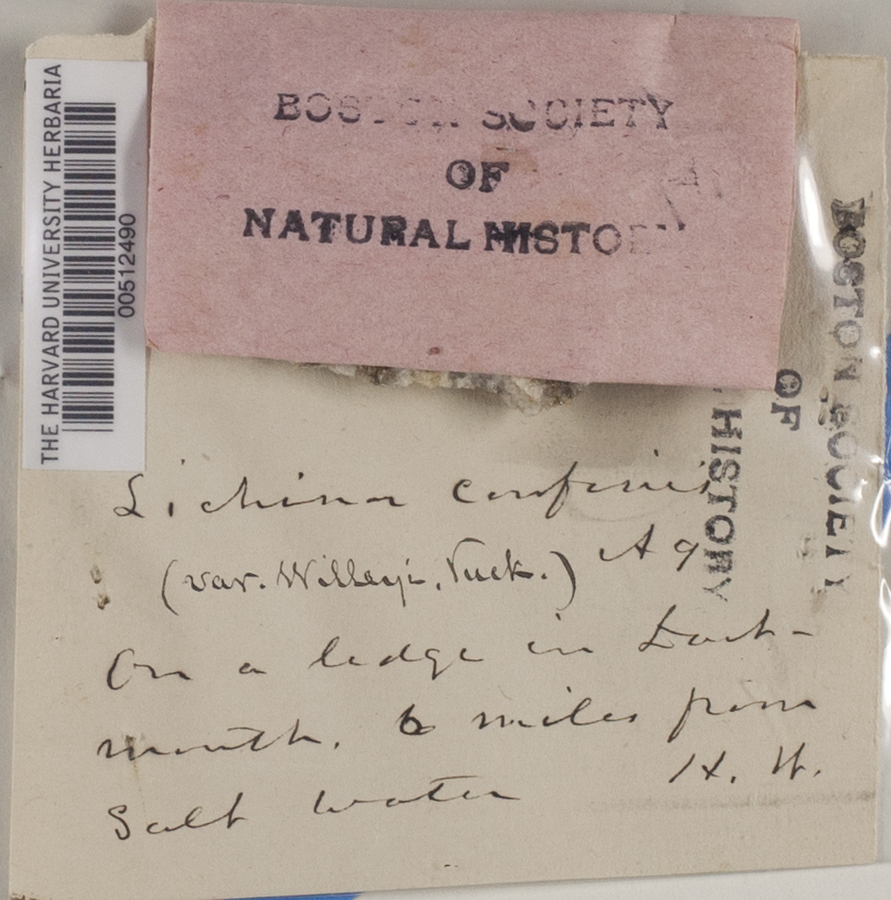 BOSTON SOCIETY
OF
NATURAL HISTO
THE HARVARD UNIVERSITY HERBARIA
00512490
BOSTON SOCIETY
OF
HISTORY
Lichina confinis Ag
(var. Willeyi, Tuck.)
On a ledge in Dart-
mouth. 6 miles from
Salt water H. W.